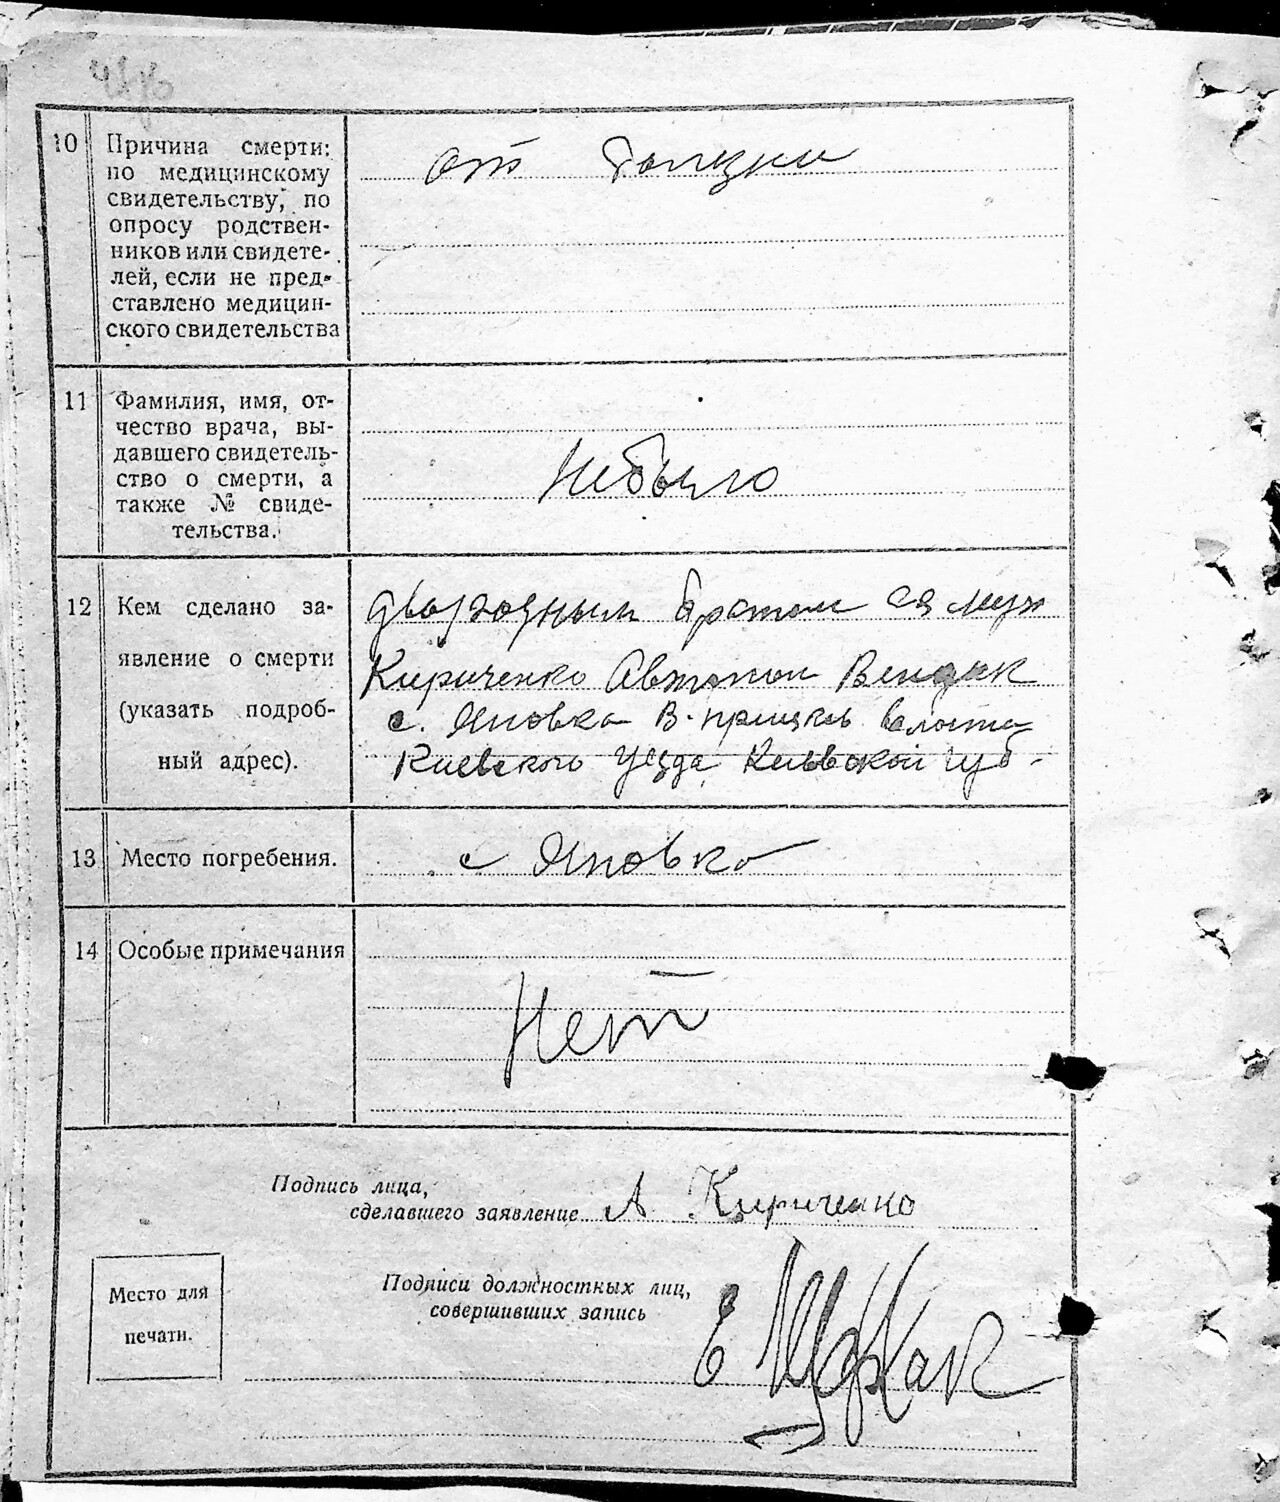 10 Причина смерти: от болезни
по медицинскому
свидетельству, по
опросу родствен-
ников или свидете-
лей, если не пред-
ставлено медицин-
ского свидетельства
11 Фамилия, имя, от-
чество врача, вы-
давшего свидетель-
ство о смерти, а
также № свиде-
тельства.
Небыло
12 Кем сделано за-
явление о смерти
(указать подроб-
ный адрес).
двоюродным братом
Кириченко Автоном
с. Яновка В.
Киевского уезда Киевской губ.
13 Место погребения. с Яновка
14 Особые примечания
Нет
Подпись лица,
сделавшего заявление А Кириченко
Подписи должностных лиц,
совершивших запись
Место для
печати.